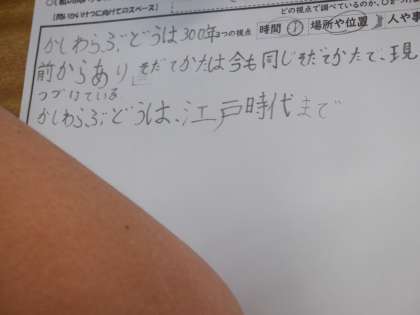 どの視点で調べているのか、
【問いかけつに向けてのスペース】
3つの視点 時間 場所や位置 人や
かしわらぶどうは300年
前からあり そだてかたは今も同じそだてかたで、現
つづけている
かしわらぶどうは、江戸時代まで